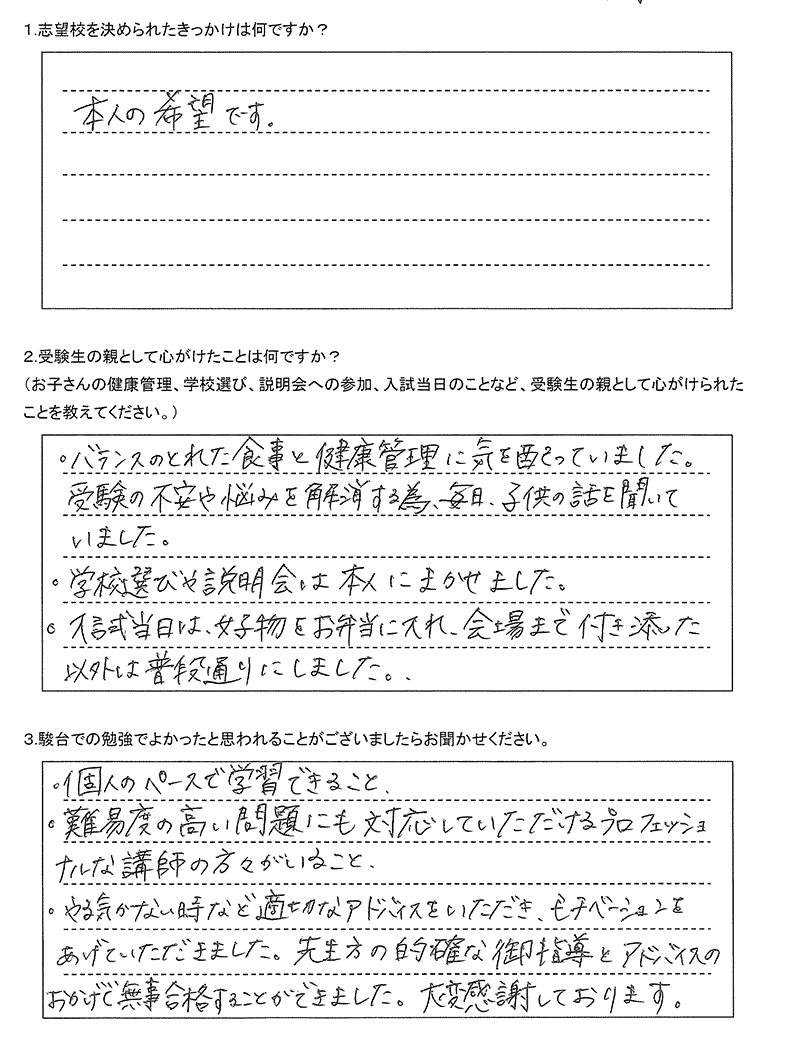 1.志望校を決められたきっかけは何ですか？
本人の希望です。
2.受験生の親として心がけたことは何ですか？
（お子さんの健康管理、学校選び、説明会への参加、入試当日のことなど、受験生の親として心がけられた
ことを教えてください。）
。バランスのとれた食事と健康管理に気を配っていました。
受験の不安や悩みを解消する為、毎日、子供の話を聞いて
いました。
。学校選びや説明会は本人にまかせました。
。入試当日は、好物をお弁当に入れ、会場まで付き添った
以外は普段通りにしました。
3.駿台での勉強でよかったと思われることがございましたらお聞かせください。
。個人のペースで学習できること、
。難易度の高い問題にも対応していただけるプロフェッショ
ナルな講師の方々がいること、
。やる気がない時など適切なアドバイスをいただき、モチベーションを
あげていただきました。先生方の的確な御指導とアドバイスの
おかげで無事合格することができました。大変感謝しております。